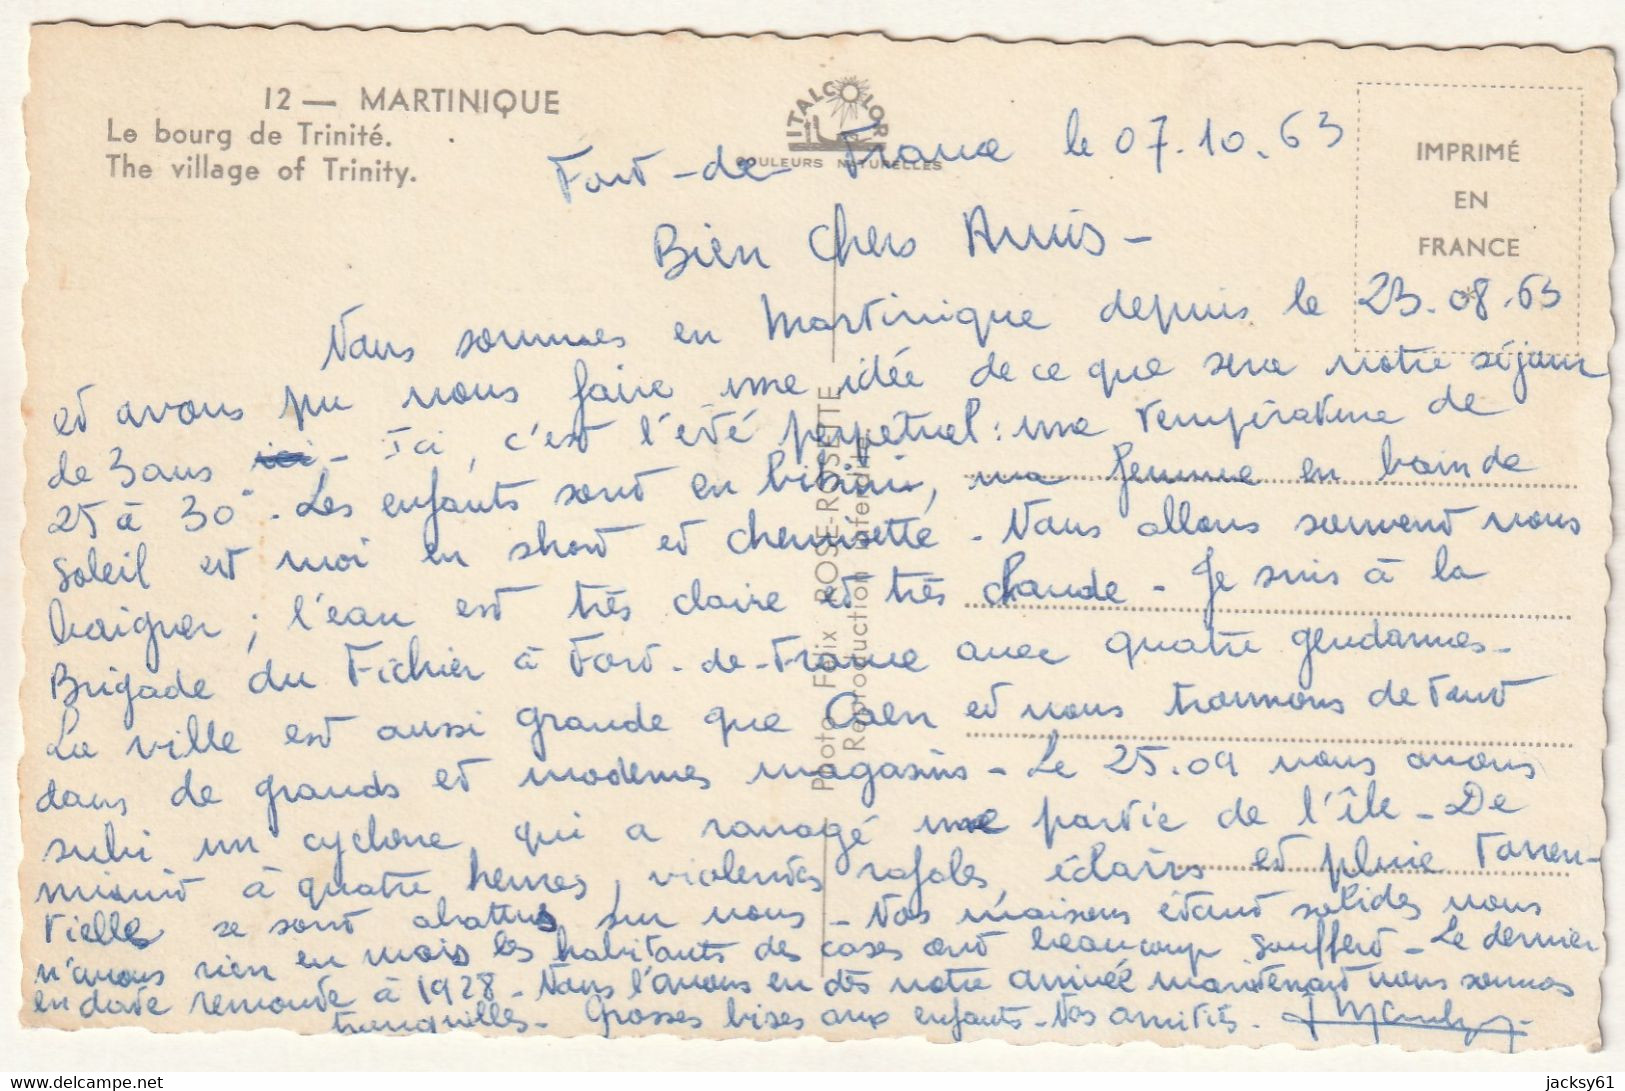 12 — MARTINIQUE
Le bourg de Trinité.
The village of Trinity.
ITALCOLOR
COULEURS NATURELLES
IMPRIMÉ
EN
FRANCE
Photo Félix ROSE-ROSETTE
Reproduction interdite
Fort-de-France le 07.10.63
Bien chers Amis -
Nous sommes en Martinique depuis le 23.08.63
et avons pu nous faire une idée de ce que sera notre séjour
de 3 ans ici - Ici, c'est l'été perpétuel : une température de
25 à 30° - Les enfants sont en bikini, ma femme en bain de
soleil et moi en short et chemisette - Nous allons souvent nous
baigner ; l'eau est très claire et très chaude - Je suis à la
Brigade du Fichier à Fort-de-France avec quatre gendarmes -
La ville est aussi grande que Caen et nous trouvons de tout
dans de grands et modernes magasins - Le 25.09 nous avons
subi un cyclone qui a ravagé une partie de l'île - De
minuit à quatre heures, violentes rafales, éclairs et pluie torren-
tielle se sont abattus sur nous - Nos maisons étant solides nous
n'avons rien eu mais les habitants des cases ont beaucoup souffert - Le dernier
en date remonte à 1928 - Nous l'avons eu dès notre arrivée maintenant nous sommes
tranquilles - Grosses bises aux enfants - Nos amitiés.
www.delcampe.net
jacksy61